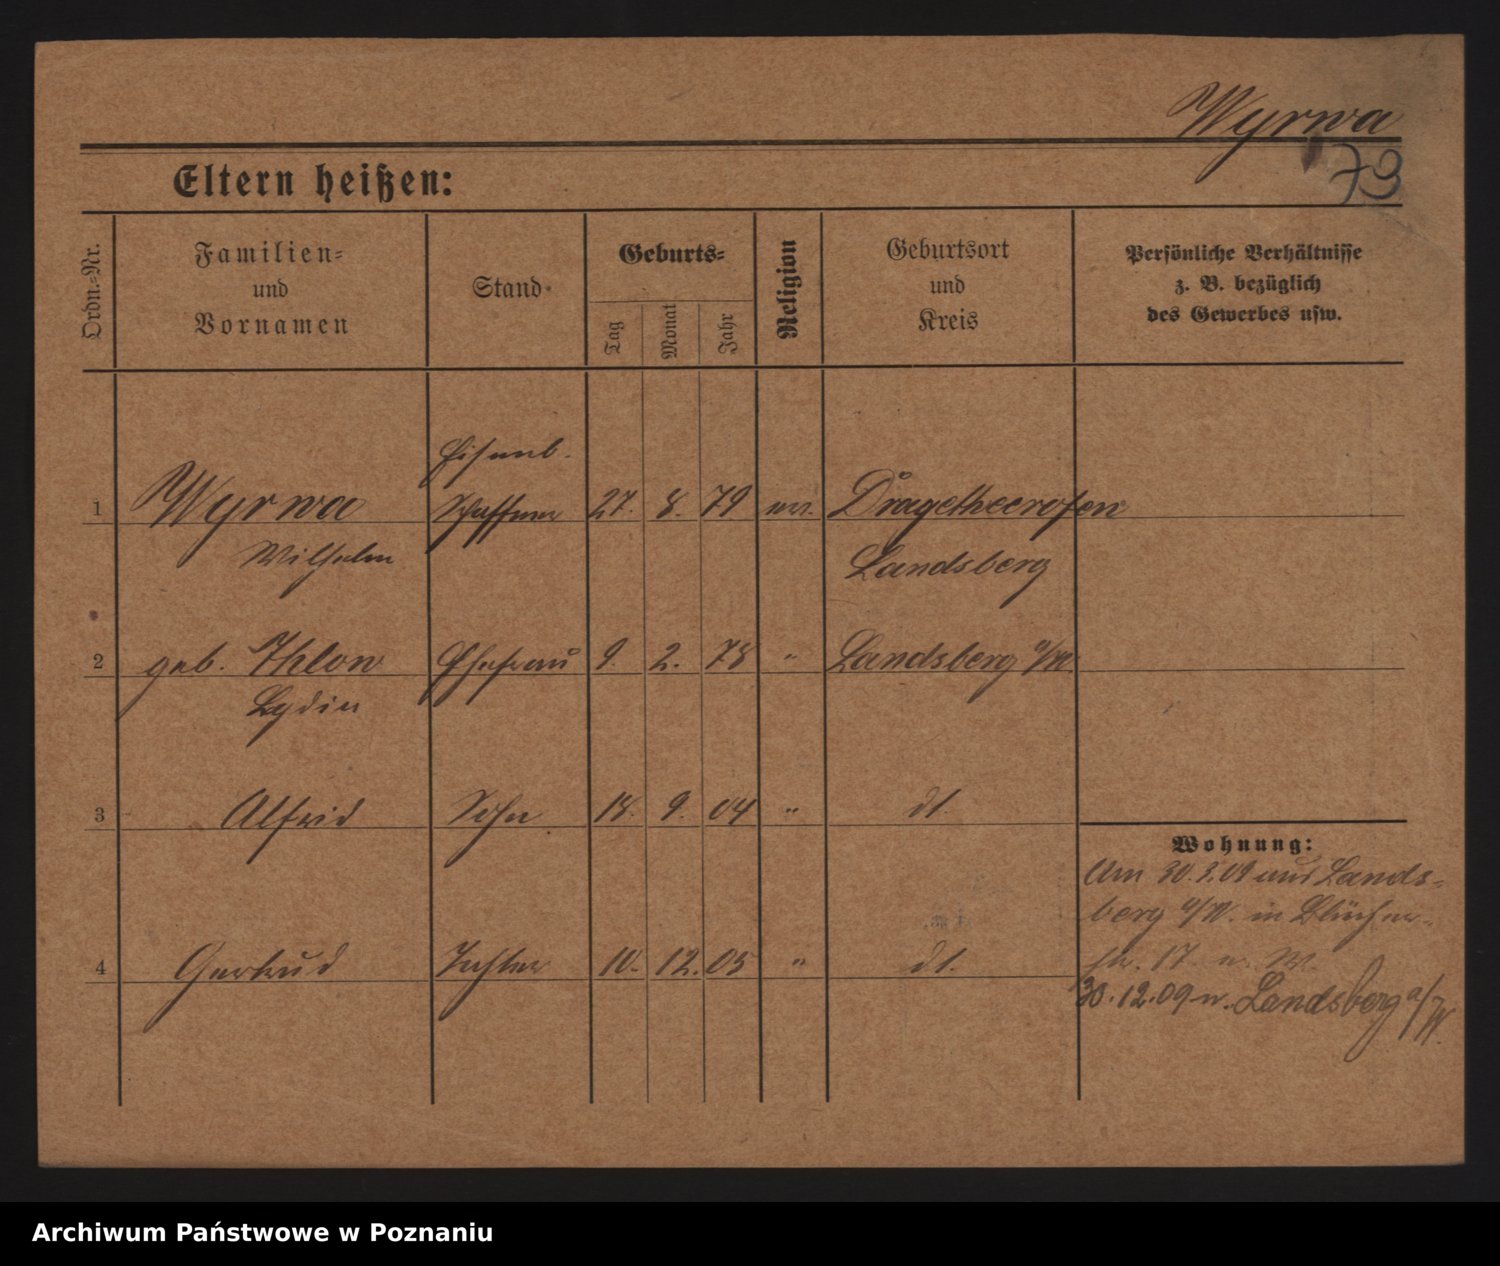 Wyrwa
73
Eltern heißen:
Ordn.-Nr.
Familien-
und
Vornamen
Stand
Geburts-
Tag
Monat
Jahr
Religion
Geburtsort
und
Kreis
Persönliche Verhältnisse
z. B. bezüglich
des Gewerbes usw.
Eisenb.
1 Wyrwa Schaffner 27. 8. 79 ev. Dragetheerofen
Wilhelm Landsberg
2 geb. Ihlow Ehefrau 9. 2. 78 " Landsberg a/W.
Lydia
3 Alfrid Sohn 18. 9. 04 " dt.
Wohnung:
Am 30.3.09 aus Lands-
berg a/W. in Blücher-
4 Gertrud Tochter 10. 12. 05 " dt.
str. 17 n. W.
30.12.09 n. Landsberg a/W.
Archiwum Państwowe w Poznaniu